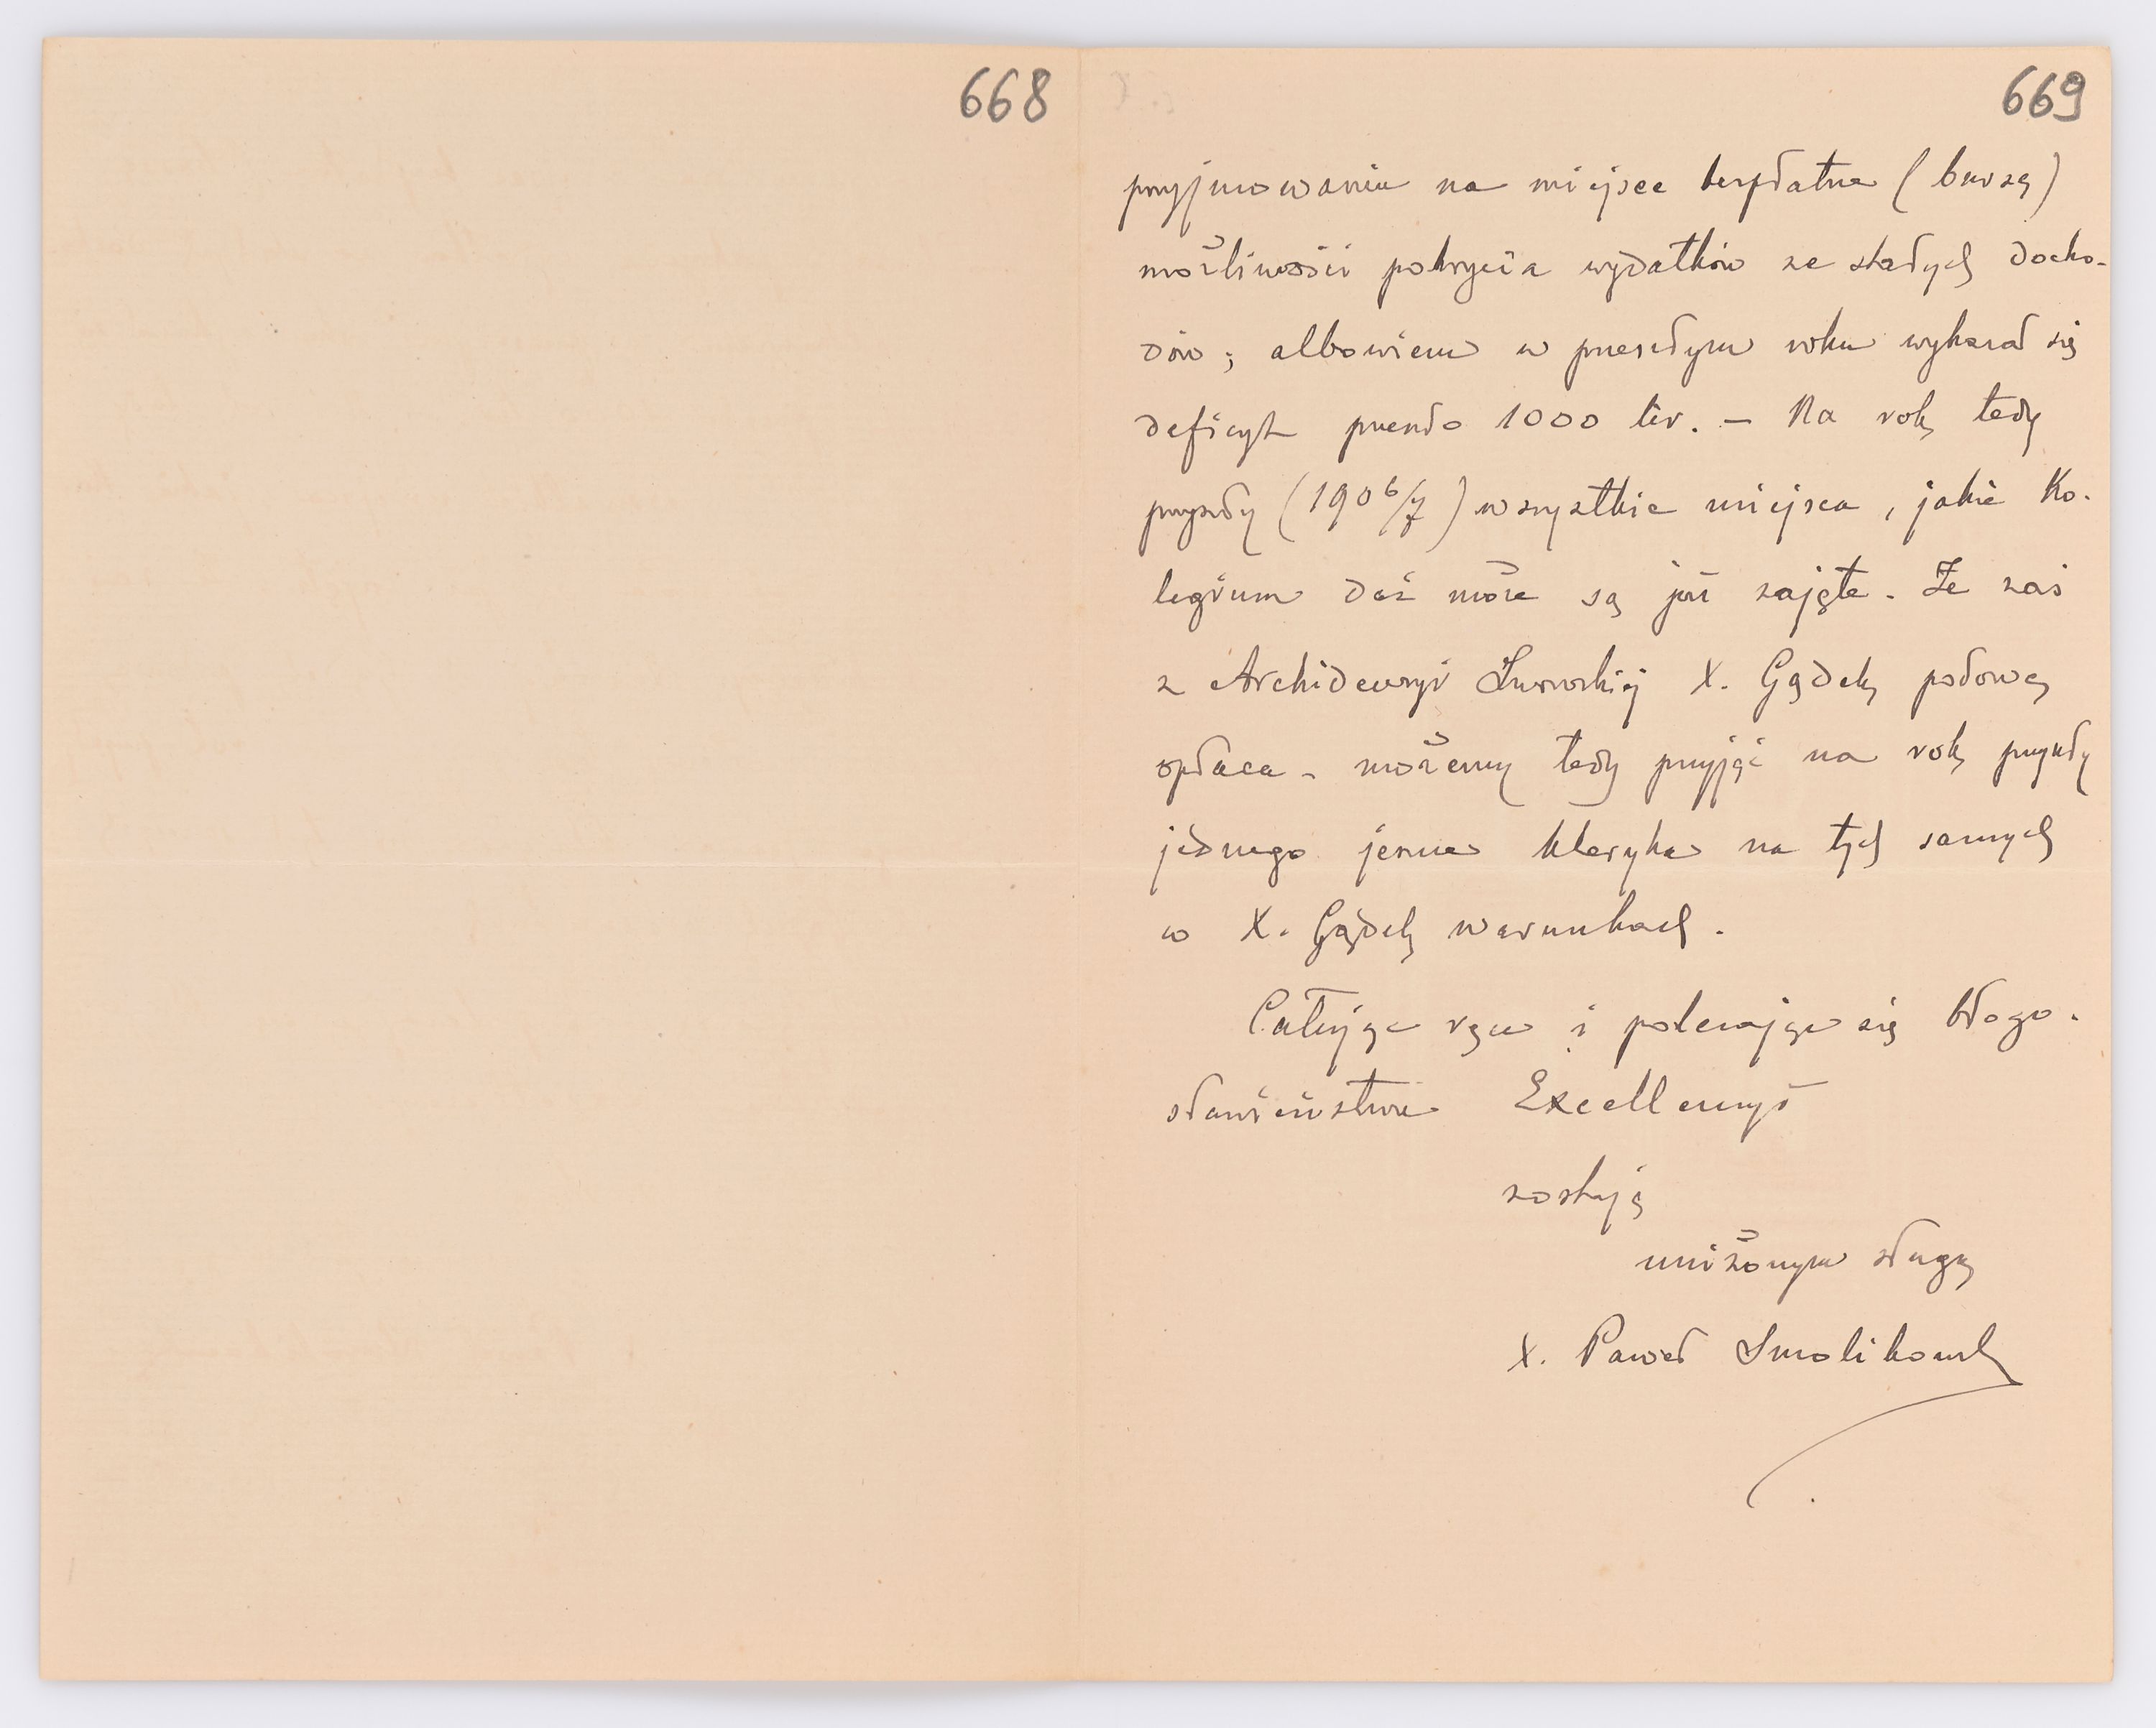 668
669
przyjmowaniu na miejsce bezpłatne (bursę)
możliwości pokrycia wydatków ze stałych docho-
dów; albowiem w przeszłym roku wykazał się
deficyt przeszło 1000 lir. — Na rok tedy
przyszły (1906/7) wszystkie miejsca, jakie Ko-
legium dać może są już zajęte. Że zaś
z Archidecezyi Lwowskiej X. Gądek połowę
opłaca - możemy tedy przyjąć na rok przyszły
jednego jeszcze kleryka na tych samych
co X. Gądek warunkach.
Całując ręce i polecając się błogo-
sławieństwu Excellencyi
zostaję
uniżonym sługą
X. Paweł Smolikowski